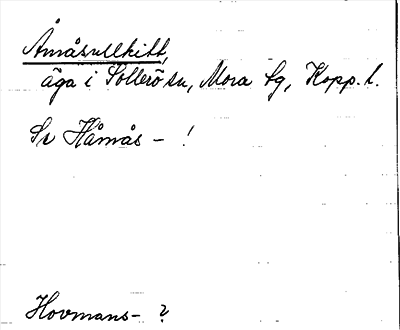 Åmåsullkitt,
äga i Sollerö sn, Mora tg, Kopp. l.
Se Håmås- !
Hovmans- ?